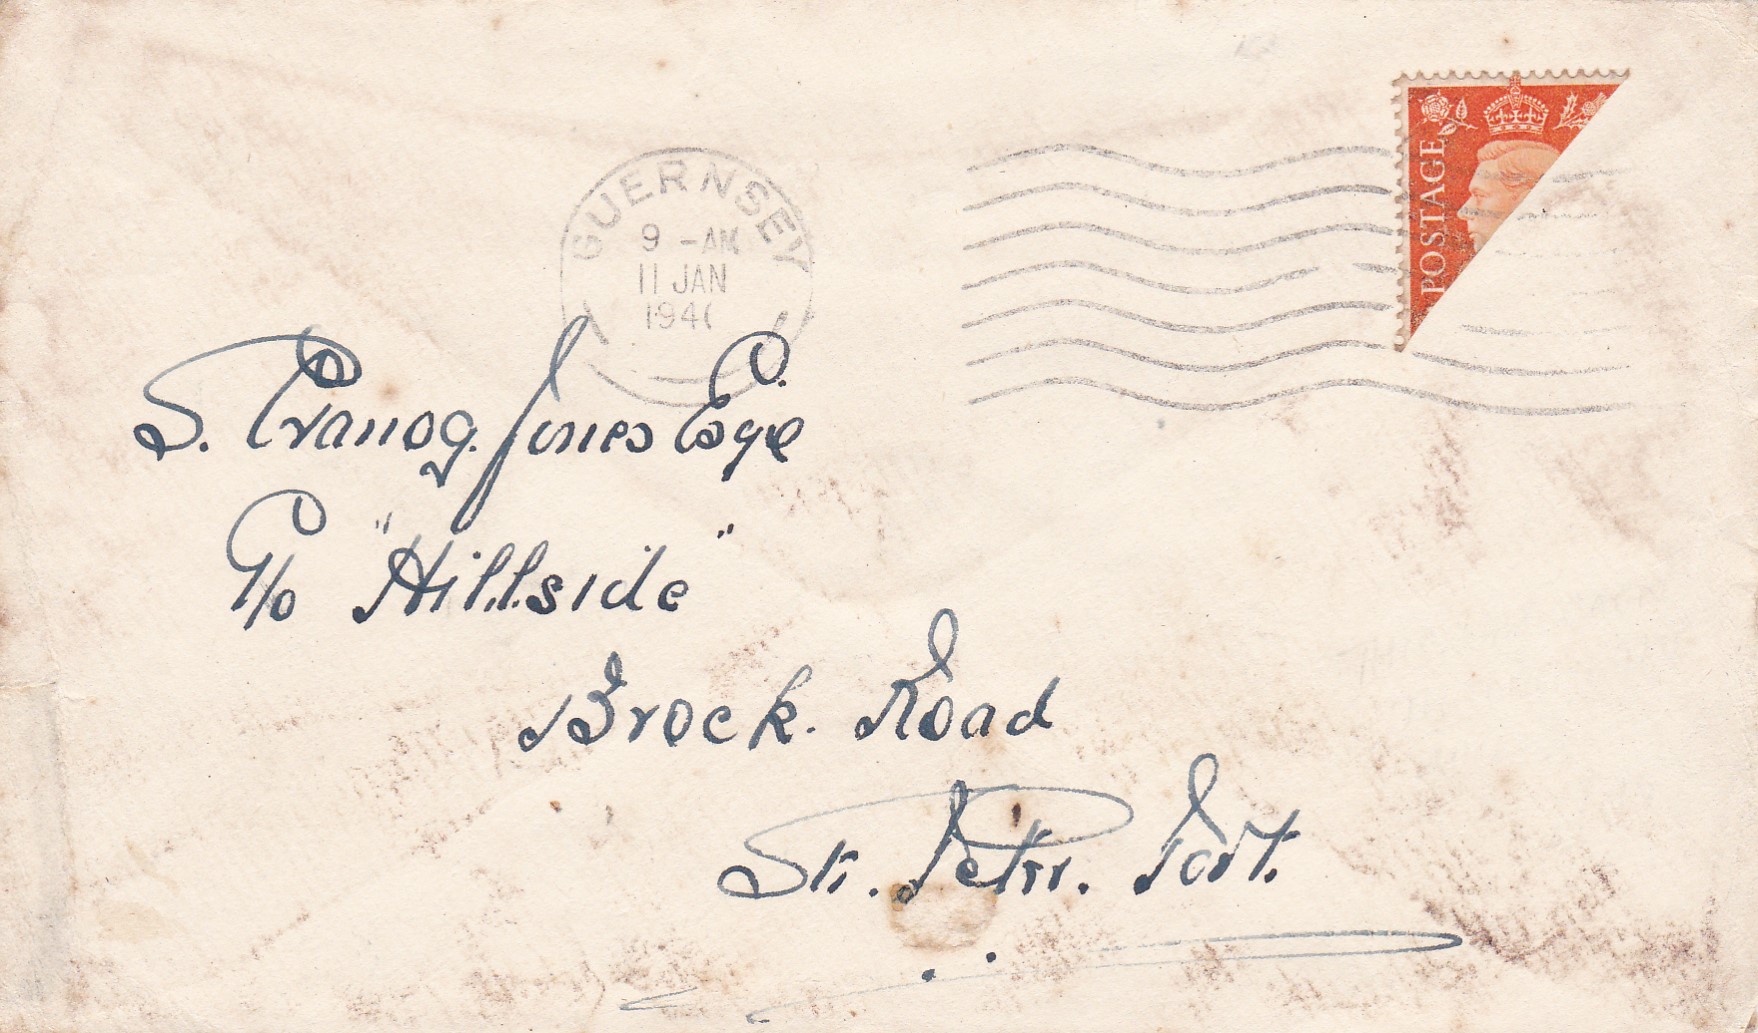 GUERNSEY
9 - AM
11 JAN
194
POSTAGE
S. Cranog. Jones Esqe
C/o "Hillside"
Brock. Road
St. Peter. Port.